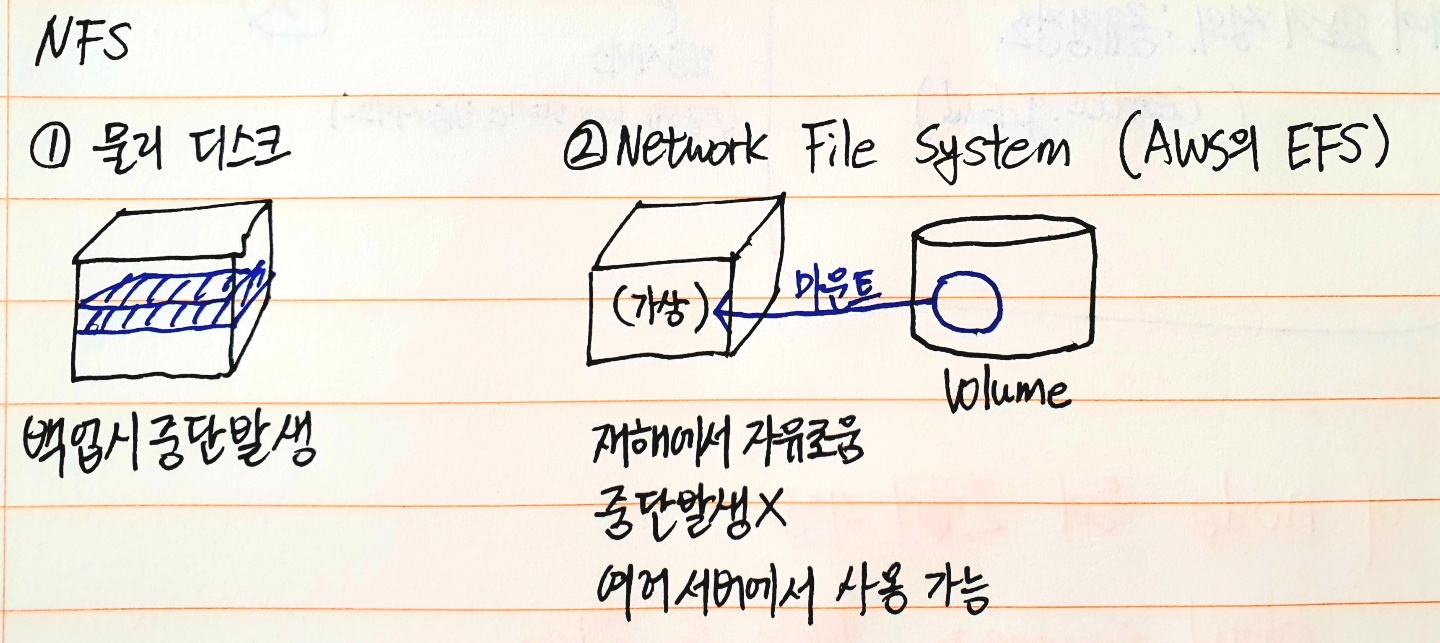 NFS
① 물리 디스크
② Network File System (AWS의 EFS)
(가상)
마운트
Volume
백업시 중단발생
재해에서 자유로움
중단발생X
여러 서버에서 사용 가능